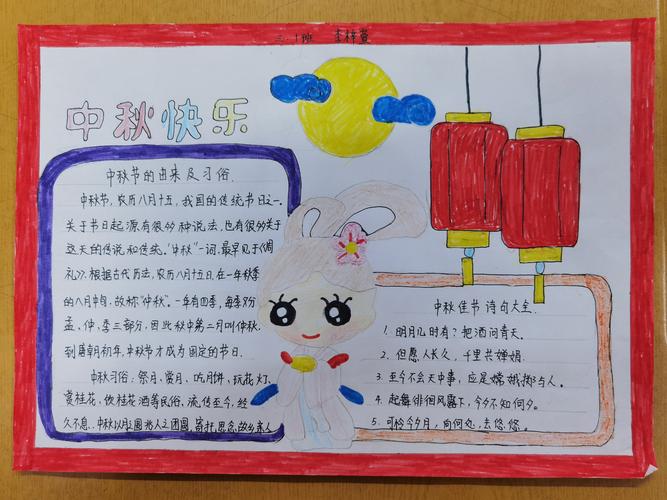 三.1班 李梓萱
中秋快乐
中秋节的由来及习俗
中秋节,农历八月十五,我国的传统节日之一。
关于节日起源有很多种说法,也有很多关于
这天的传说和传统。“中秋”一词,最早见于《周
礼》。根据古代历法,农历八月十五日,在一年秋季
的八月中旬,故称“仲秋”。一年有四季,每季又分
孟、仲、季三部分,因此秋中第二月叫仲秋,
到唐朝初年,中秋节才成为固定的节日.
中秋习俗:祭月、赏月、吃月饼、玩花灯、
赏桂花、饮桂花酒等民俗,流传至今,经
久不息.中秋以月之圆兆人之团圆,寄托思念故乡亲人
中秋佳节诗句大全.
1. 明月几时有?把酒问青天。
2. 但愿人长久,千里共婵娟.
3. 至今不会天中事,应是嫦娥掷与人。
4. 起舞徘徊风露下,今夕不知何夕。
5. 可怜今夕月,向何处,去悠悠。